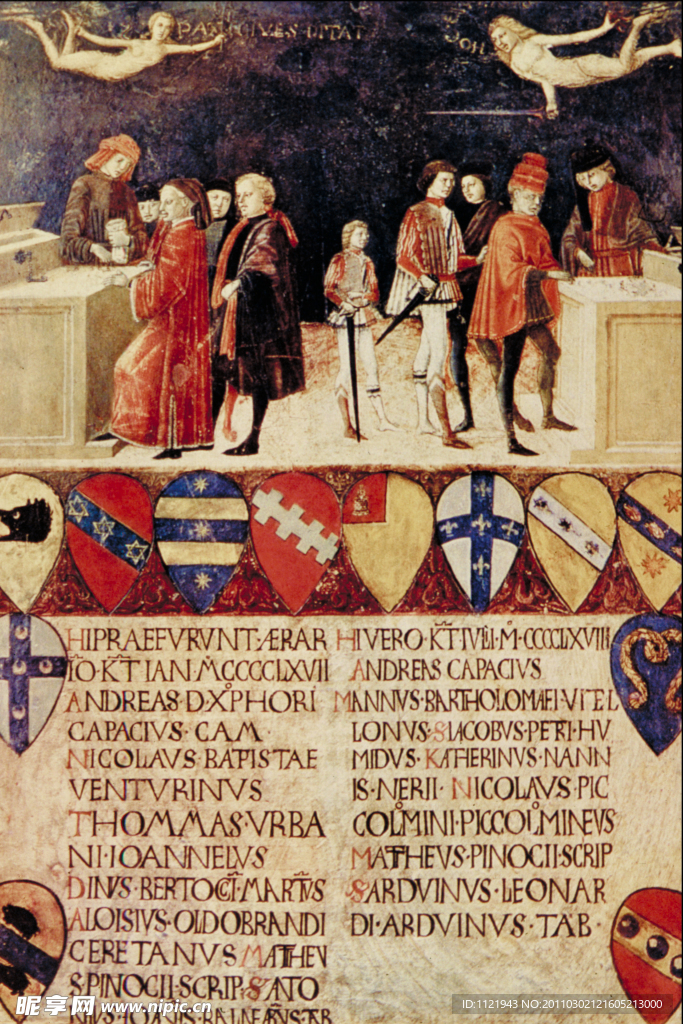 PA CIVES DITAT
HIPRAEFVRVNT·ÆRAR
IO·KT·IAN·MCCCCLXVII
ANDREAS·D·XPHORI
CAPACIVS·CAM·
NICOLAVS·BATISTAE
VENTVRINVS
THOMMAS·VRBA
NI·IOANNELVS
DINVS·BERTOCCI·MARTIVS
ALOISIVS·OLDOBRANDI
CERETANVS·MATHEV
S·PINOCII·SCRIP·SATO
HIVERO·KT·IVLI·M·CCCCLXVIII
ANDREAS CAPACIVS
MANNVS·BARTHOLOMAEI·VITEL
LONVS·SIACOBVS·PETRI·HV
MIDVS·KATHERINVS·NANN
IS·NERII·NICOLAVS·PIC
COLOMINI·PICCOLOMINEVS
MATHEVS·PINOCII·SCRIP
SARDVINVS·LEONAR
DI·ARDVINVS·TAB·
昵享网 www.nipic.cn
ID:1121943 NO:20110302121605213000